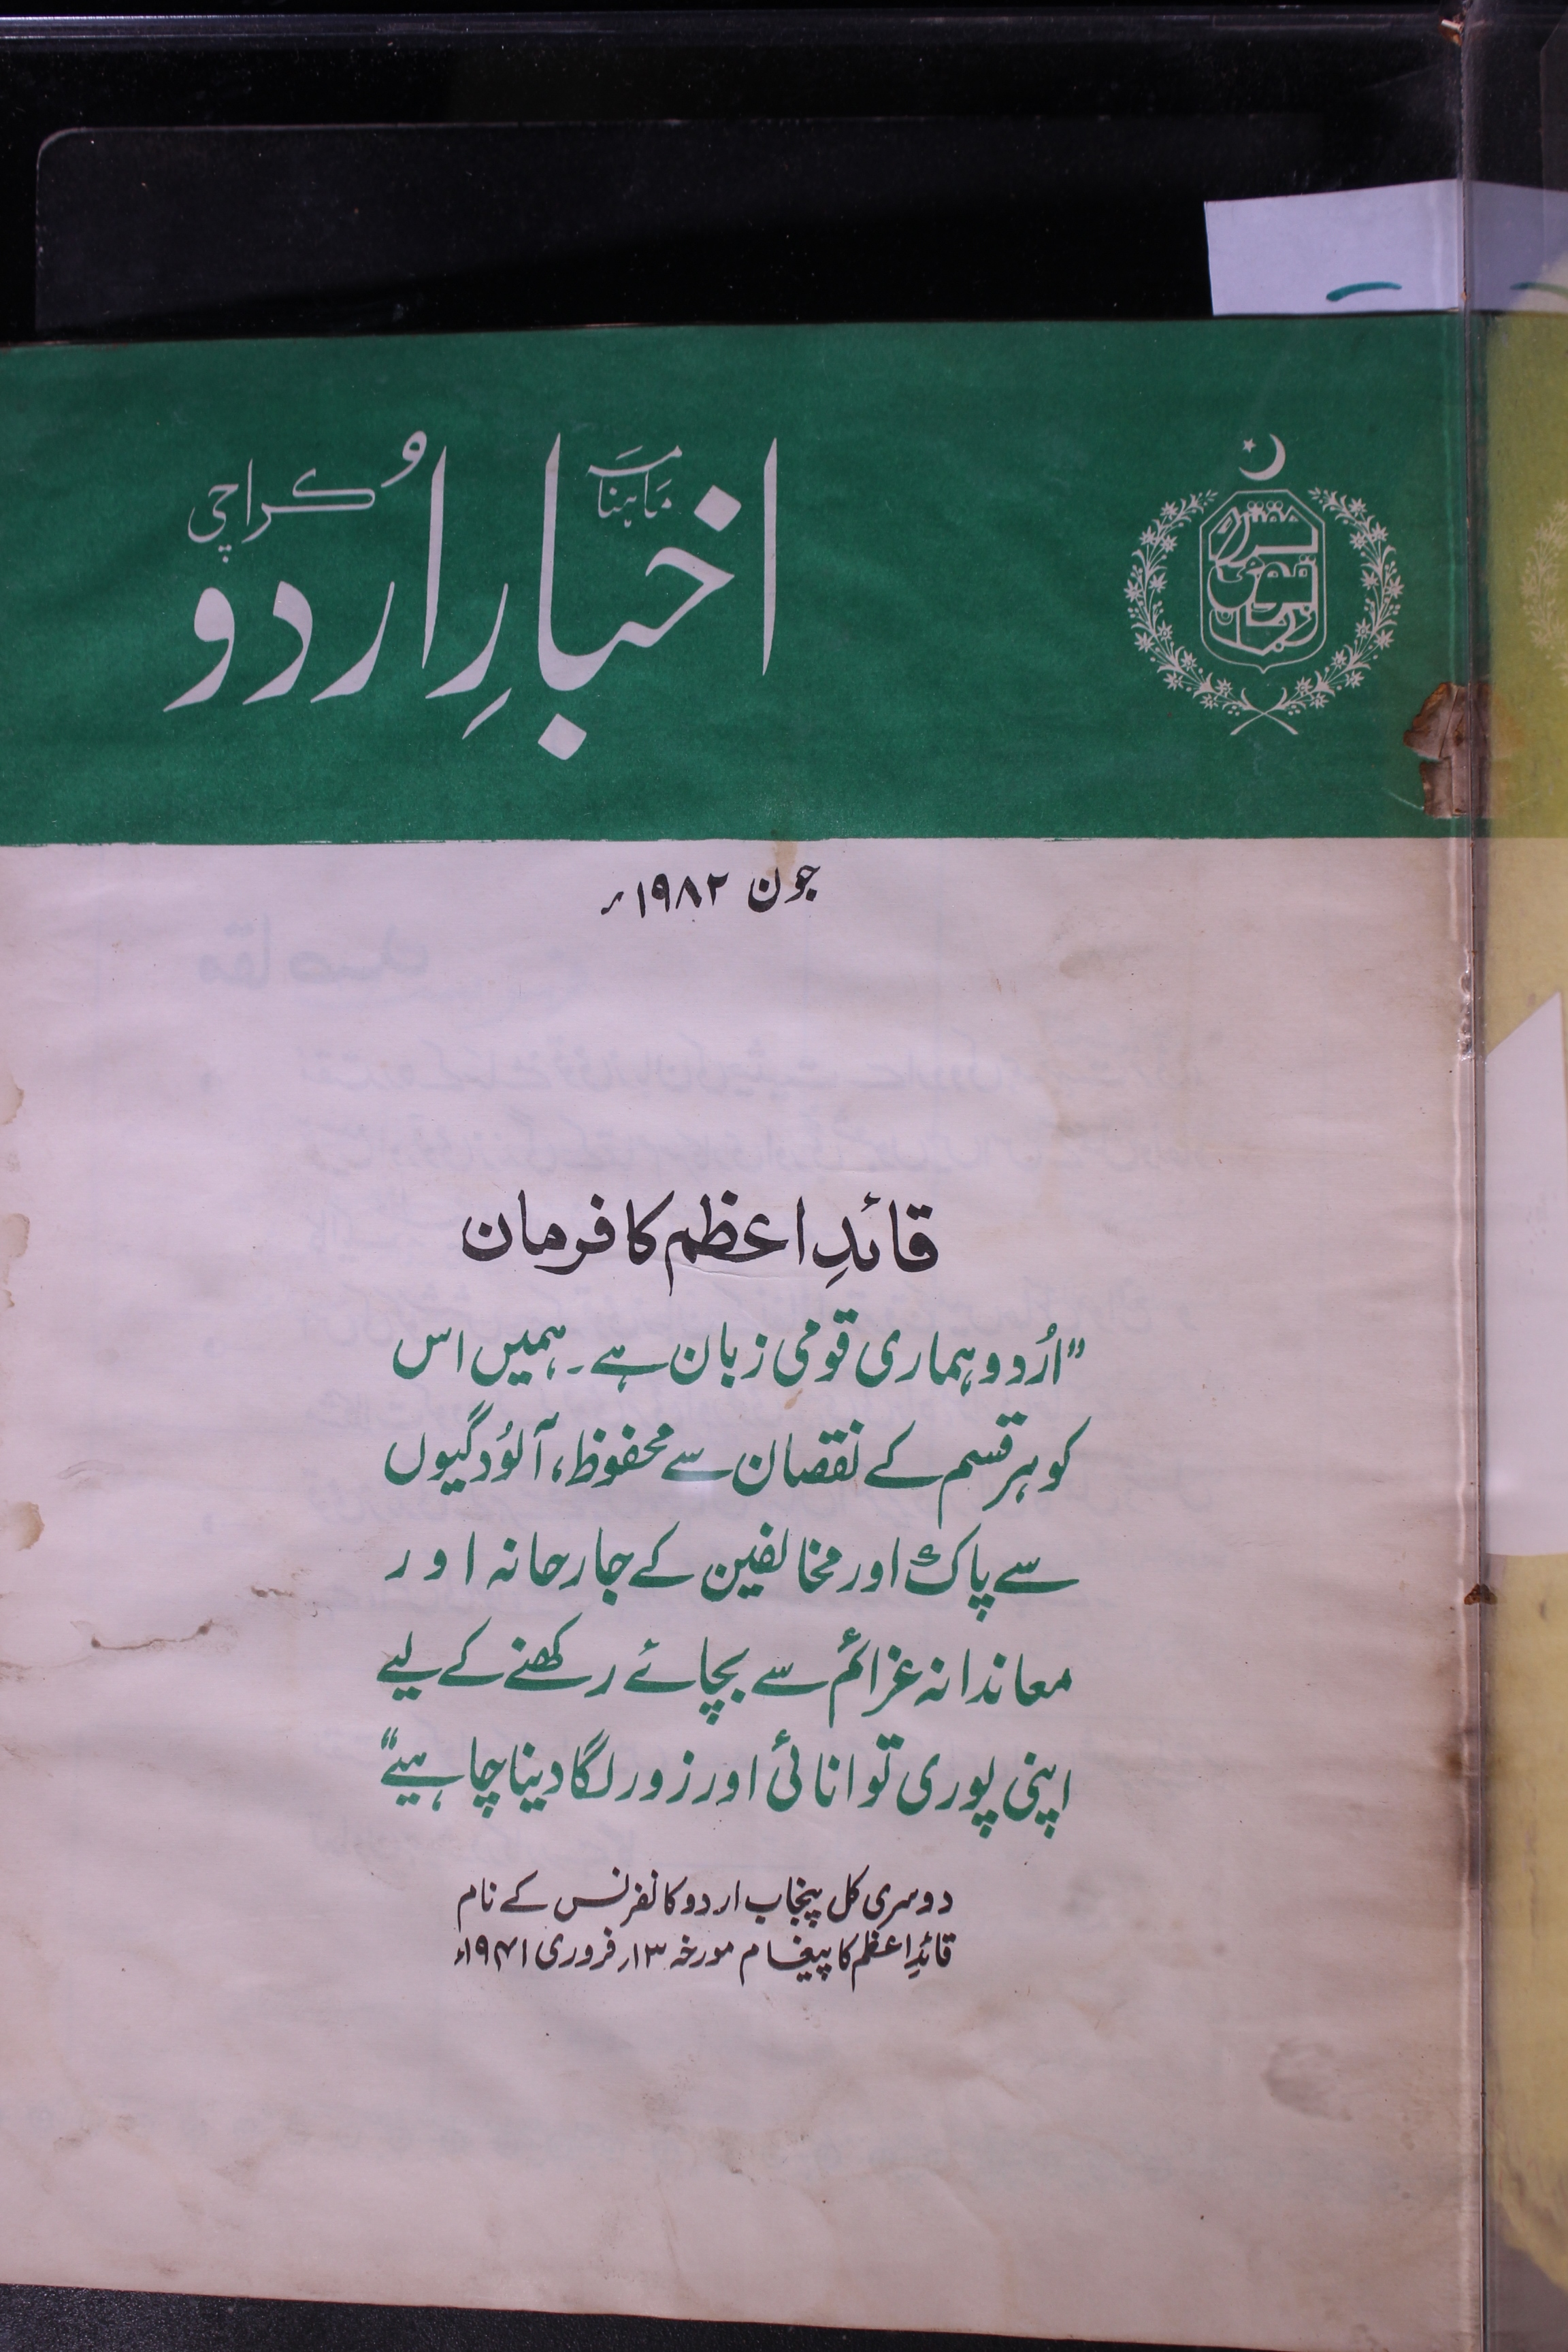 ماہنامہ
اخبارِ اُردو
کراچی
مقتدرہ
قومی
زبان
جون ۱۹۸۲ء
قائدِ اعظم کا فرمان
"اُردو ہماری قومی زبان ہے۔ ہمیں اس
کو ہر قسم کے نقصان سے محفوظ، آلوُدگیوں
سے پاک اور مخالفین کے جارحانہ اور
معاندانہ عزائم سے بچائے رکھنے کے لیے
اپنی پوری توانائی اور زور لگا دینا چاہیے"
دوسری کل پنجاب اردو کانفرنس کے نام
قائدِ اعظم کا پیغام مورخہ ۱۳ر فروری ۱۹۴۱ء